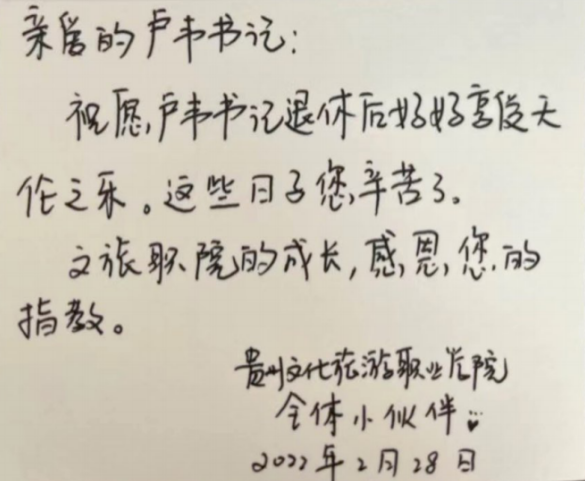 亲爱的卢韦书记：
祝愿卢韦书记退休后好好享受天
伦之乐。这些日子您辛苦了。
文旅职院的成长，感恩您的
指教。
贵州文化旅游职业学院
全体小伙伴
2022年2月28日